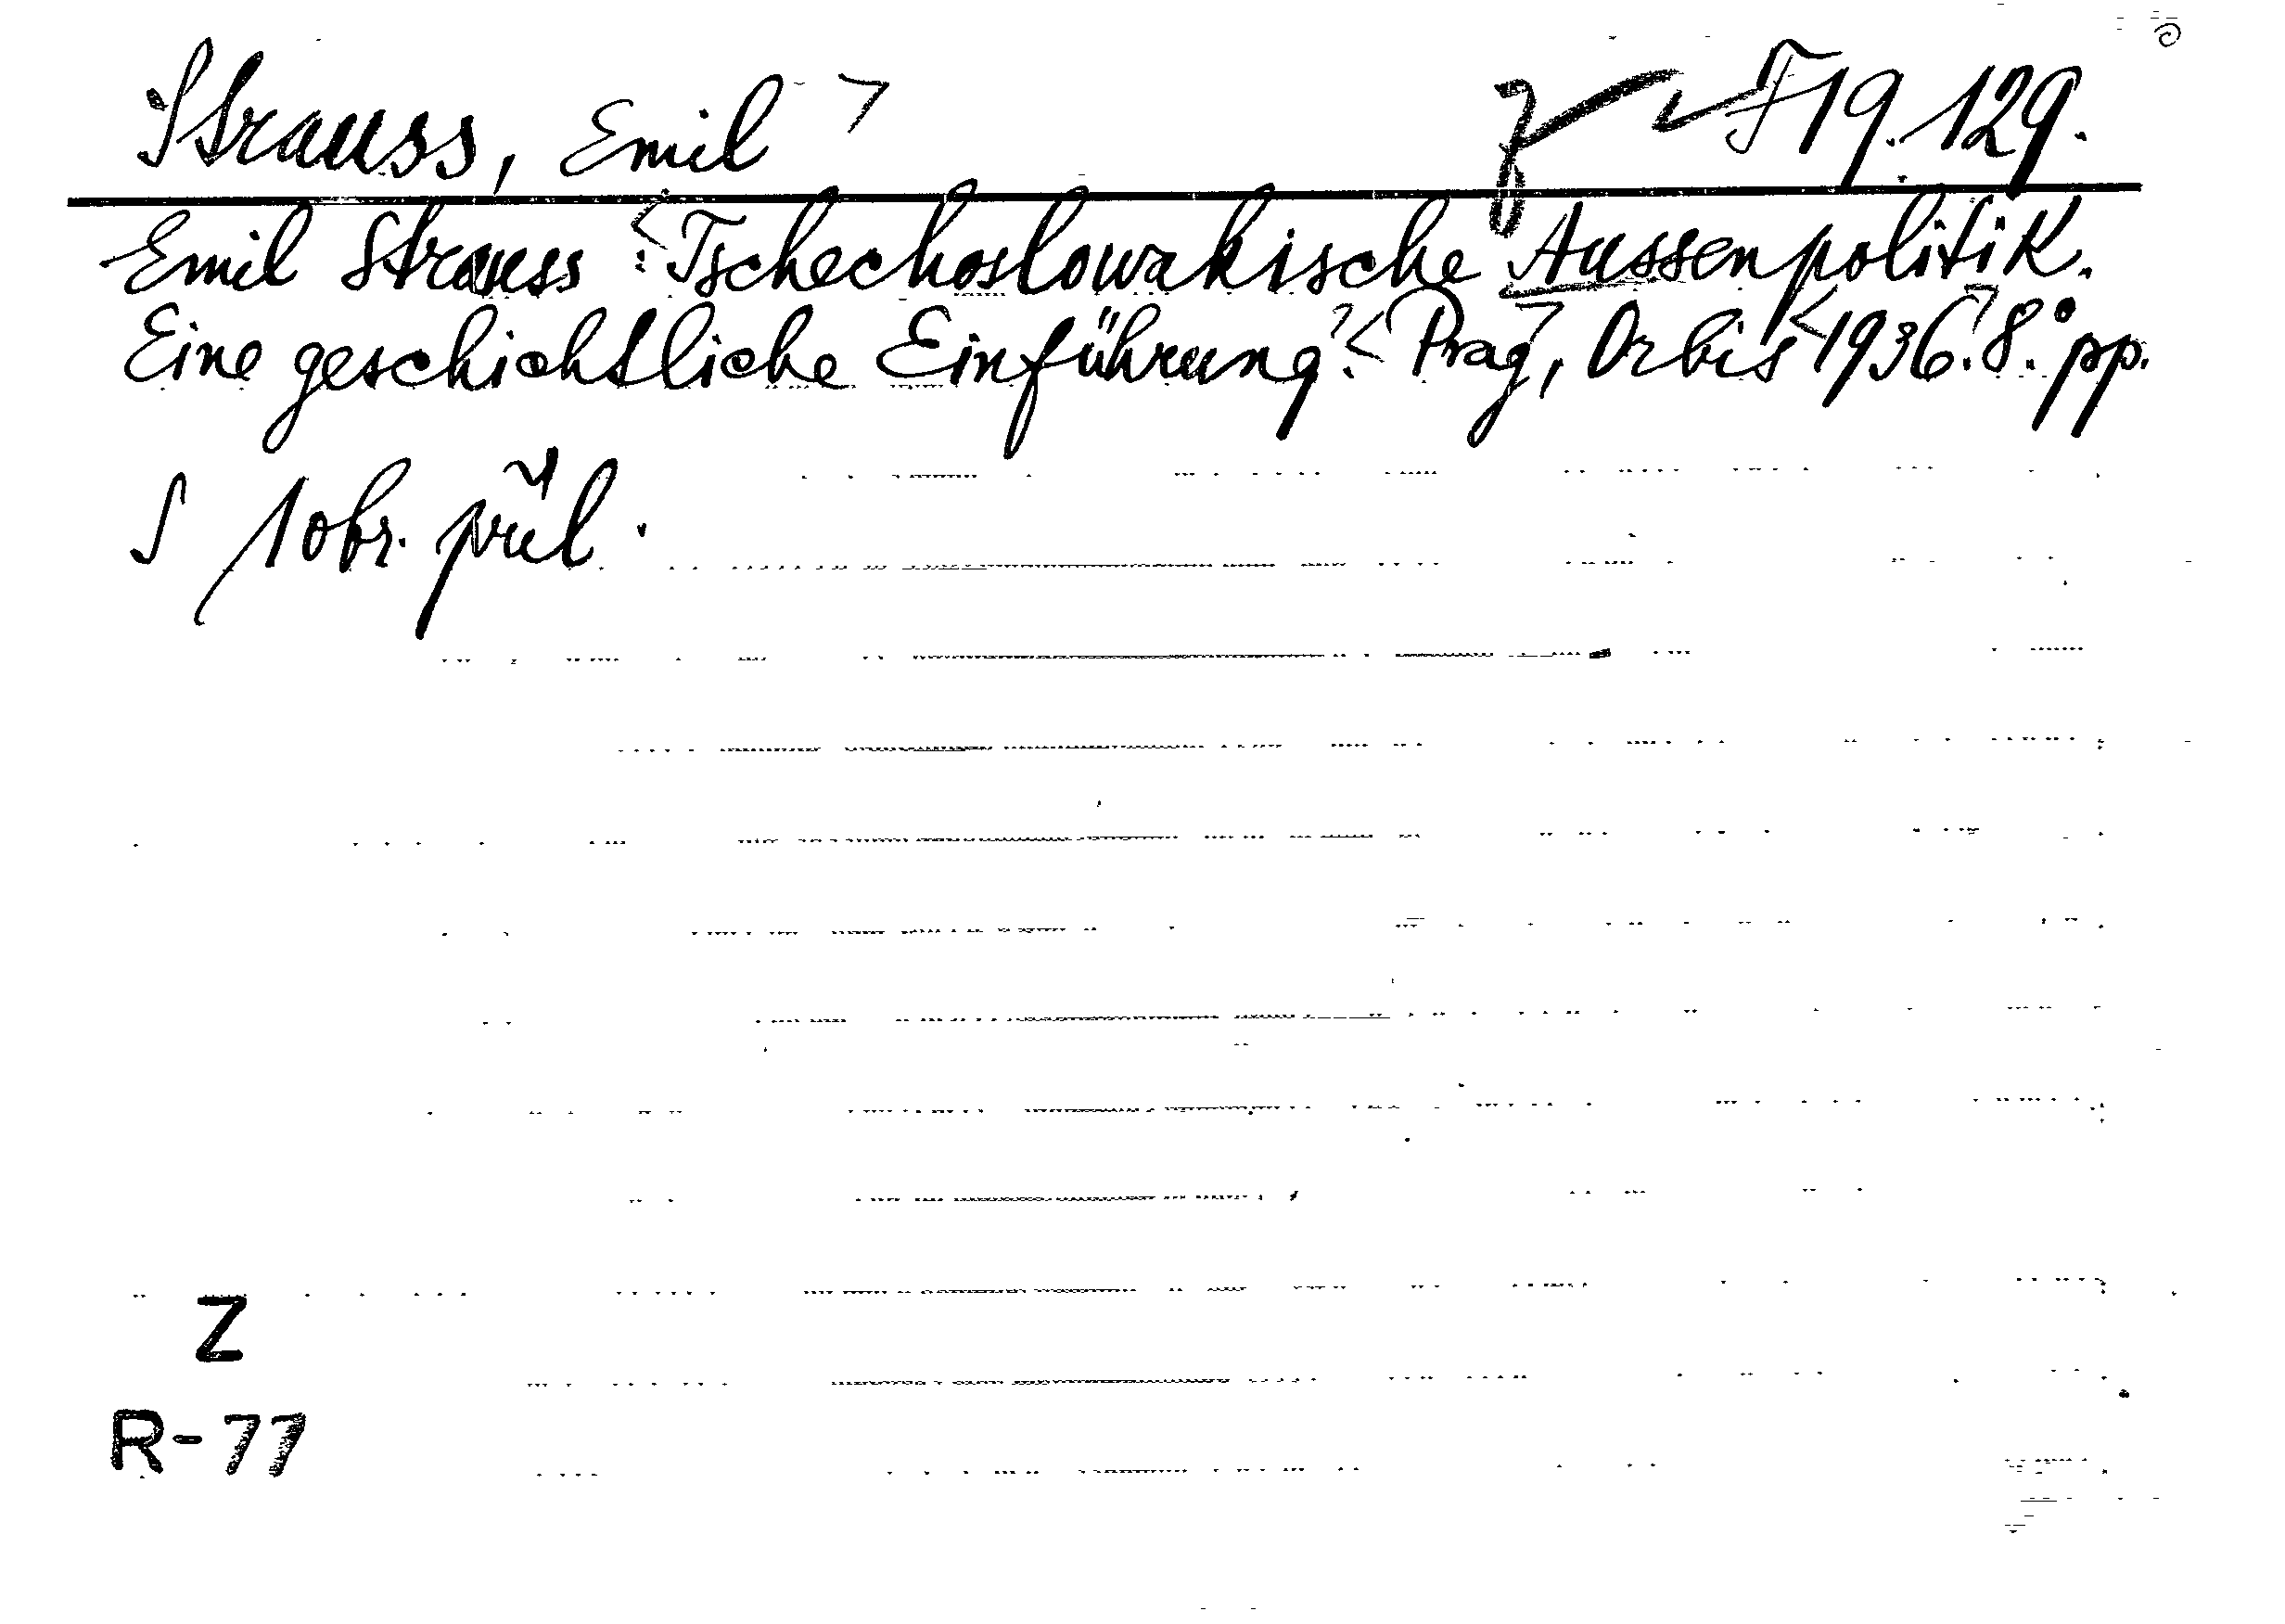 Strauss, Emil F 19.129.
Emil Strauss : Tschechoslowakische Aussenpolitik.
Eine geschichtliche Einführung. Prag, Orbis 1936. 8.° pp.
S 1 obr. příl.
Z
R-77